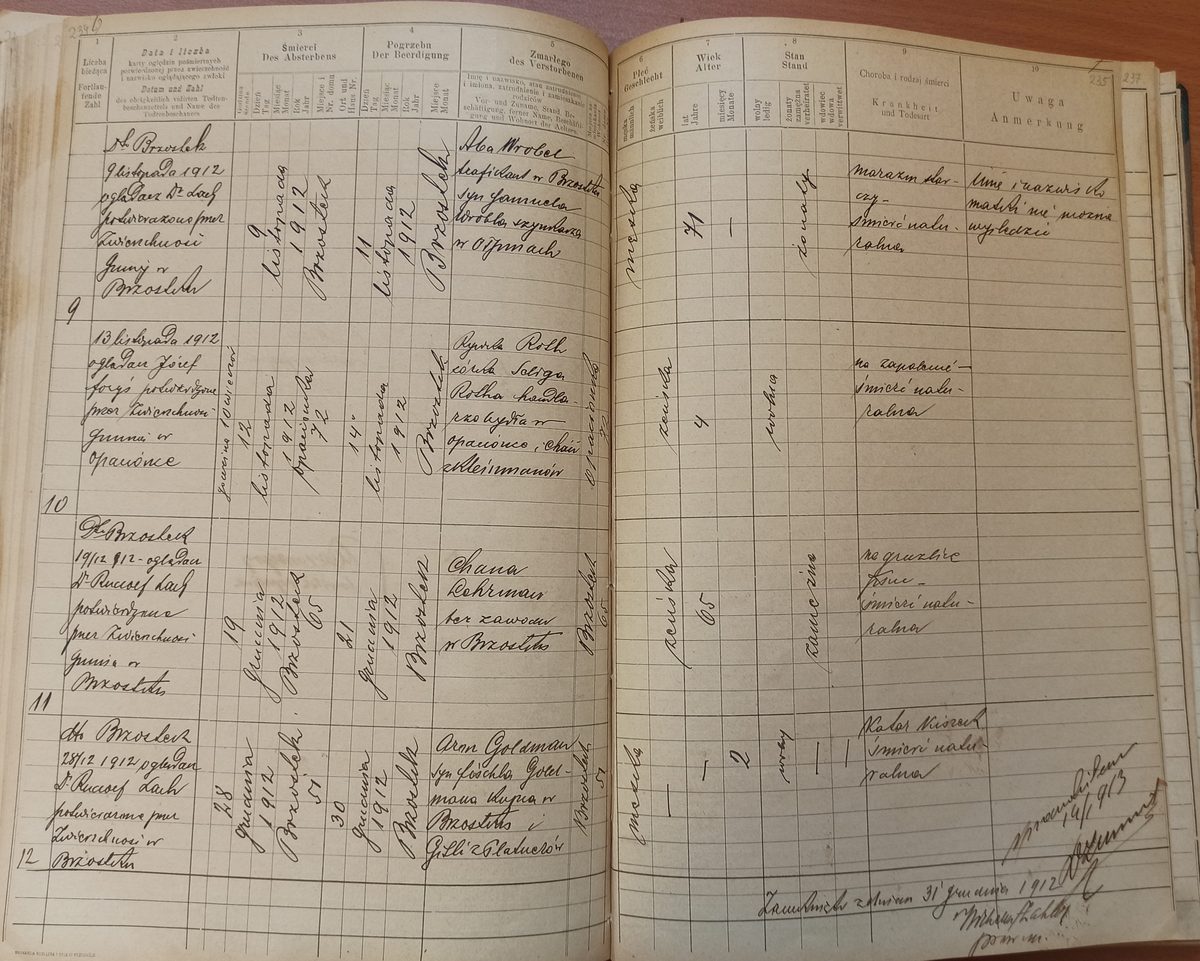 234
1
Liczba
bieżąca
Fortlau-
fende
Zahl
2
Data i liczba
karty oględzin pośmiertnych
potwierdzonej przez zwierzchność
i nazwisko oglądającego zwłoki
Datum und Zahl
des obrigkeitlich vidirten Todten-
beschauzettels und Name des
Todtenbeschauers
3
Śmierci
Des Absterbens
Dzień
Tag
Miesiąc
Monat
Rok
Jahr
Miejsce i
Nr. domu
Ort und
Haus Nr.
4
Pogrzebu
Der Beerdigung
Dzień
Tag
Miesiąc
Monat
Rok
Jahr
Miejsce
Ort
5
Zmarłego
des Verstorbenen
Imię i nazwisko, stan zatrudnienie
i imiona, zatrudnienie i zamieszkanie
rodziców
Vor- und Zuname, Stand, Be-
schäftigung, ferner Name, Beschäfti-
gung und Wohnort der Aeltern.
6
Płeć
Geschlecht
męska
männlich
żeńska
weiblich
7
Wiek
Alter
lat
Jahre
miesięcy
Monate
8
Stan
Stand
wolny
ledig
żonaty
zamężna
verheiratet
wdowiec
wdowa
verwittwet
9
Choroba i rodzaj śmierci
Krankheit
und Todesart
10
Uwaga
Anmerkung
235
237
Dto Brzostek
9 listopada 1912
oglądacz Dr Lach
potwierdzono przez
Zwierzchność
Gminy w
Brzostku
9
9
listopada
1912
Brzostek
11
listopada
1912
Brzostek
Aba Wrobel
trafikant w Brzostku
syn Samuela
Wróbla szynkarza
w
męska
71
—
żonaty
marazm star-
czy-
śmierć natu-
ralna
Imię i nazwisko
matki nie można
wyśledzić
13 listopada 1912
oglądan Józef
Foryś potwierdzone
przez Zwierzchność
Gminy w
Opacionce
10
godzina 10 wieczór
12
listopada
1912
Opacionka
72
14
listopada
1912
Brzostek
Rywka Roth
córka Seliga
Rotha handla-
rza bydła w
Opacionce i Chai
z Kleinmanów
Opacionka
72
żeńska
4
wolna
na zapalenie-
śmierć natu-
ralna
Dto Brzostek
19/12 912 - oglądan
Dr Rudolf Lach
potwierdzone
przez Zwierzchność
Gminą w
Brzostku
11
19
grudnia
1912
Brzostek
65
21
grudnia
1912
Brzostek
Chana
Lehrman
bez zawodu
w Brzostku
Brzostek
65
żeńska
65
zamężna
na gruźlicę
płuc -
śmierć natu-
ralna
dto Brzostek
28/12 1912 oglądan
Dr Rudolf Lach
potwierdzone przez
Zwierzchność w
Brzostku
12
28
grudnia
1912
Brzostek
51
30
grudnia
1912
Brzostek
Aron Goldman
syn Fischla Gold-
mana kupca w
Brzostku i
Gitli z Płatuchów
Brzostek
51
męska
—
2
wolny
—
Katar kiszek
śmierć natu-
ralna
Sprawdziłem
14/1 1913
Zamknięto z dniem 31 grudnia 1912